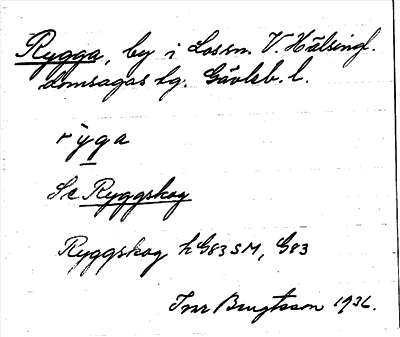 Rygga, by i Lossn. V. Hälsingl.
domsagas tg. Gävleb. l.
rỳga
Se Ryggskog
Ryggskog hG83SM, G83
Ivar Bengtsson 1936.